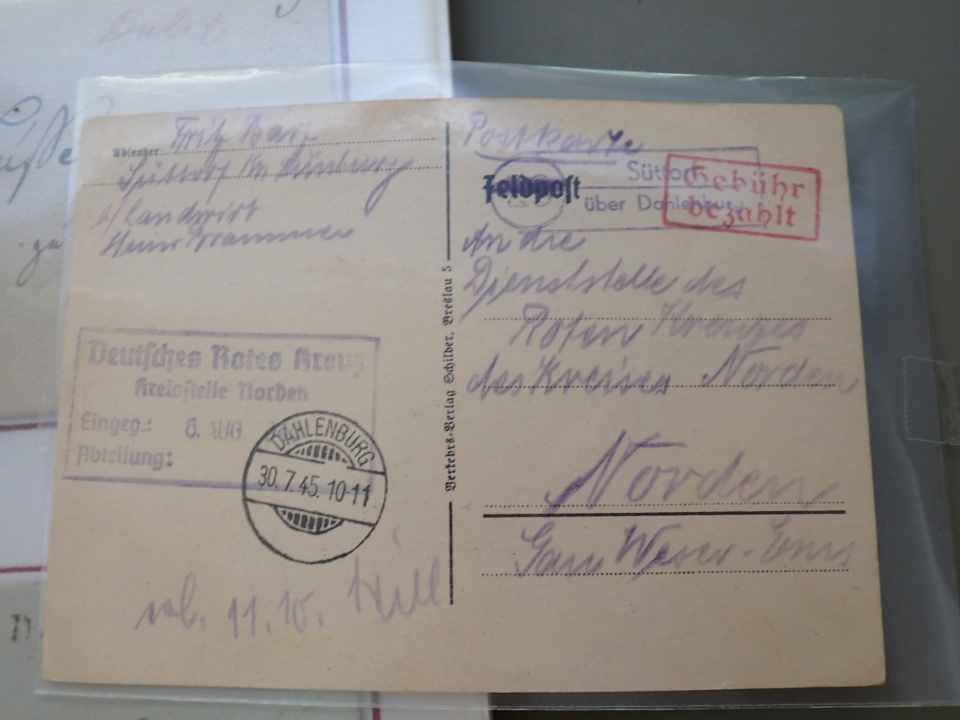 Absender Fritz
Süttorf Kr. Lüneburg
b/ Landwirt
Postkarte
Feldpost
Süttorf
über Dahlenburg
Gebühr
bezahlt
An die
Dienststelle des
Roten Kreuzes
des Kreises Norden
Norden
Gau Weser-Ems
Verkehrs-Verlag Schilder, Breslau 5
Deutsches Rotes Kreuz
Kreisstelle Norden
Eingeg.: 6. AUG
Abteilung:
DAHLENBURG
30.7.45.10-11
11. 10.